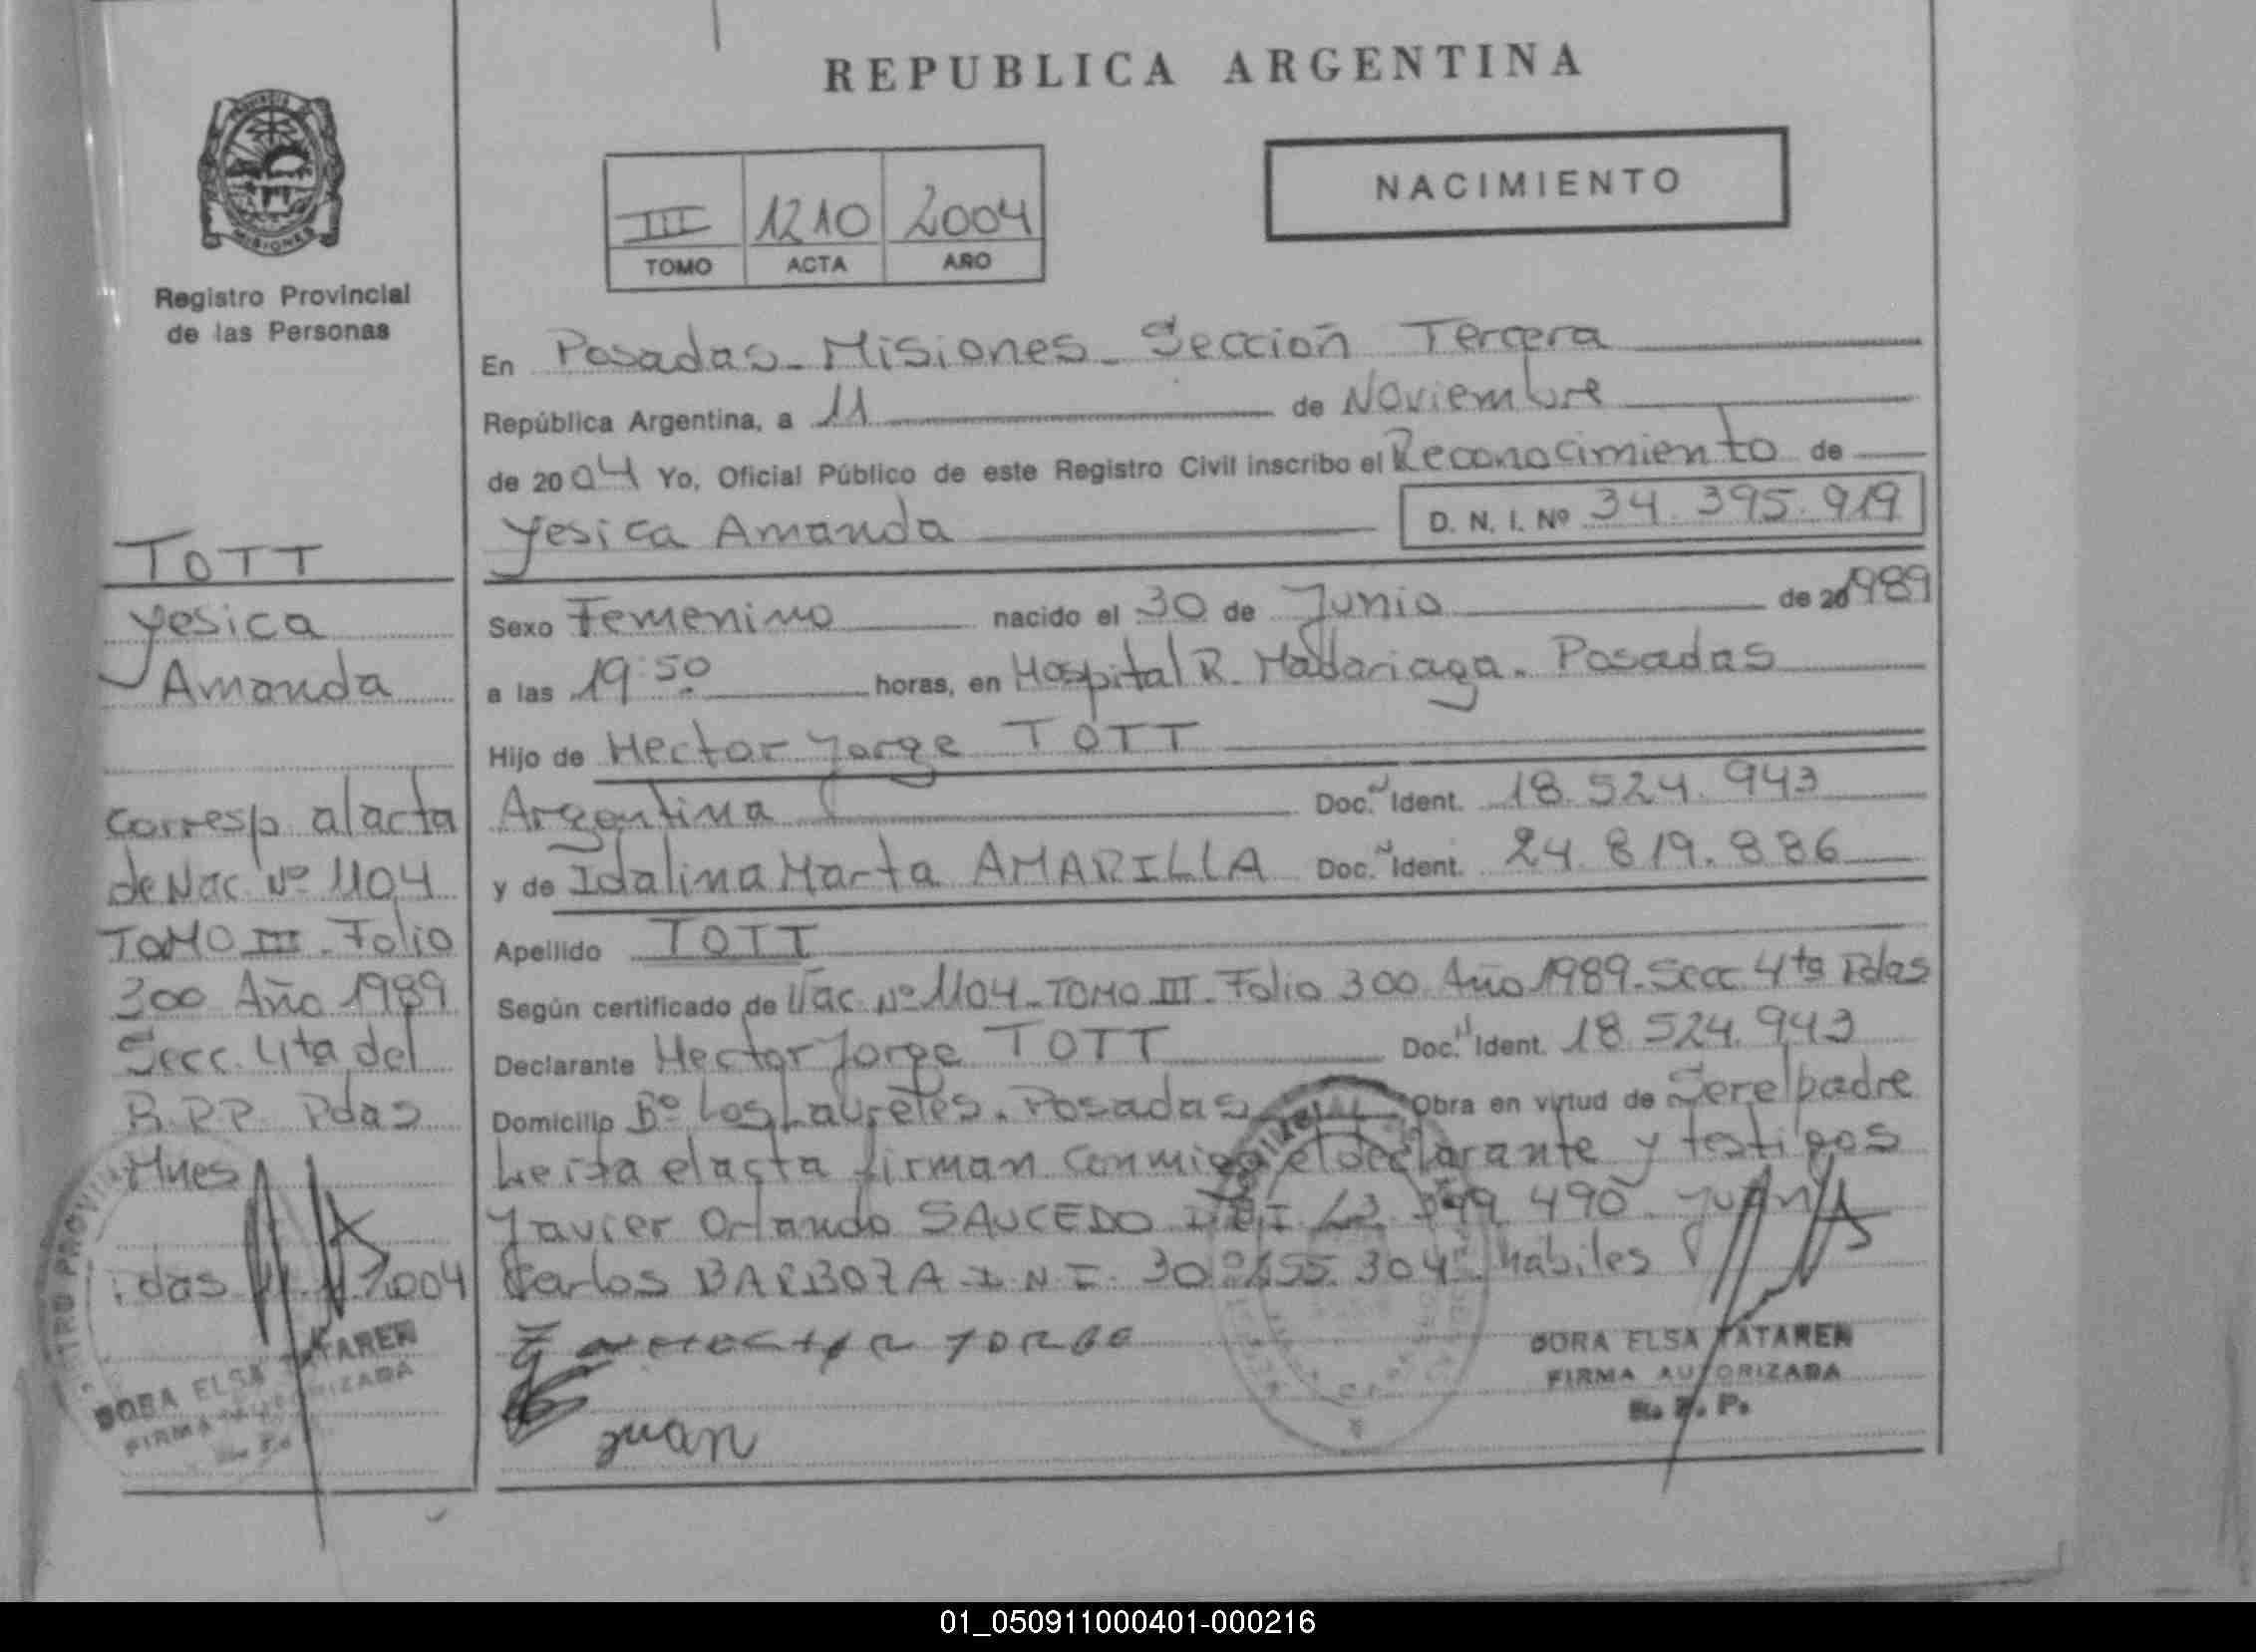 REPUBLICA ARGENTINA
NACIMIENTO
III 1210 2004
TOMO ACTA AÑO
MISIONES
Registro Provincial
de las Personas
En Posadas - Misiones - Sección Tercera
República Argentina, a 11 de Noviembre
de 2004 Yo, Oficial Público de este Registro Civil inscribo el Reconocimiento de
Yesica Amanda D. N. I. Nº 34.395.919
Sexo Femenino nacido el 30 de Junio de 20 1989
a las 19:50 horas, en Hospital R. Madariaga. Posadas
Hijo de Hector Jorge TOTT
Argentina Doc. Ident. 18.524.943
y de Idalina Marta AMARILLA Doc. Ident. 24.819.886
Apellido TOTT
Según certificado de Nac. Nº 1104 - TOMO III - Folio 300. Año 1989 - Secc 4ta Pdas
Declarante Hector Jorge TOTT Doc. Ident. 18.524.943
Domicilio Bº Los Laureles. Posadas Obra en virtud de Ser el padre
Leida el acta firman conmigo el declarante y testigos
Javier Orlando SAUCEDO 399.490 Juan
Carlos BARBOZA D.N.I. 30. 304 hábiles
JORGE
Juan
DORA ELSA TATAREN
FIRMA AUTORIZADA
R. P. P.
TOTT
Yesica
Amanda
Corresp al acta
de Nac Nº 1104
TOMO III - Folio
300 Año 1989
Secc. 4ta del
R.P.P. Pdas
Mnes
2004
DORA ELSA TATAREN
FIRMA AUTORIZADA
01_050911000401-000216